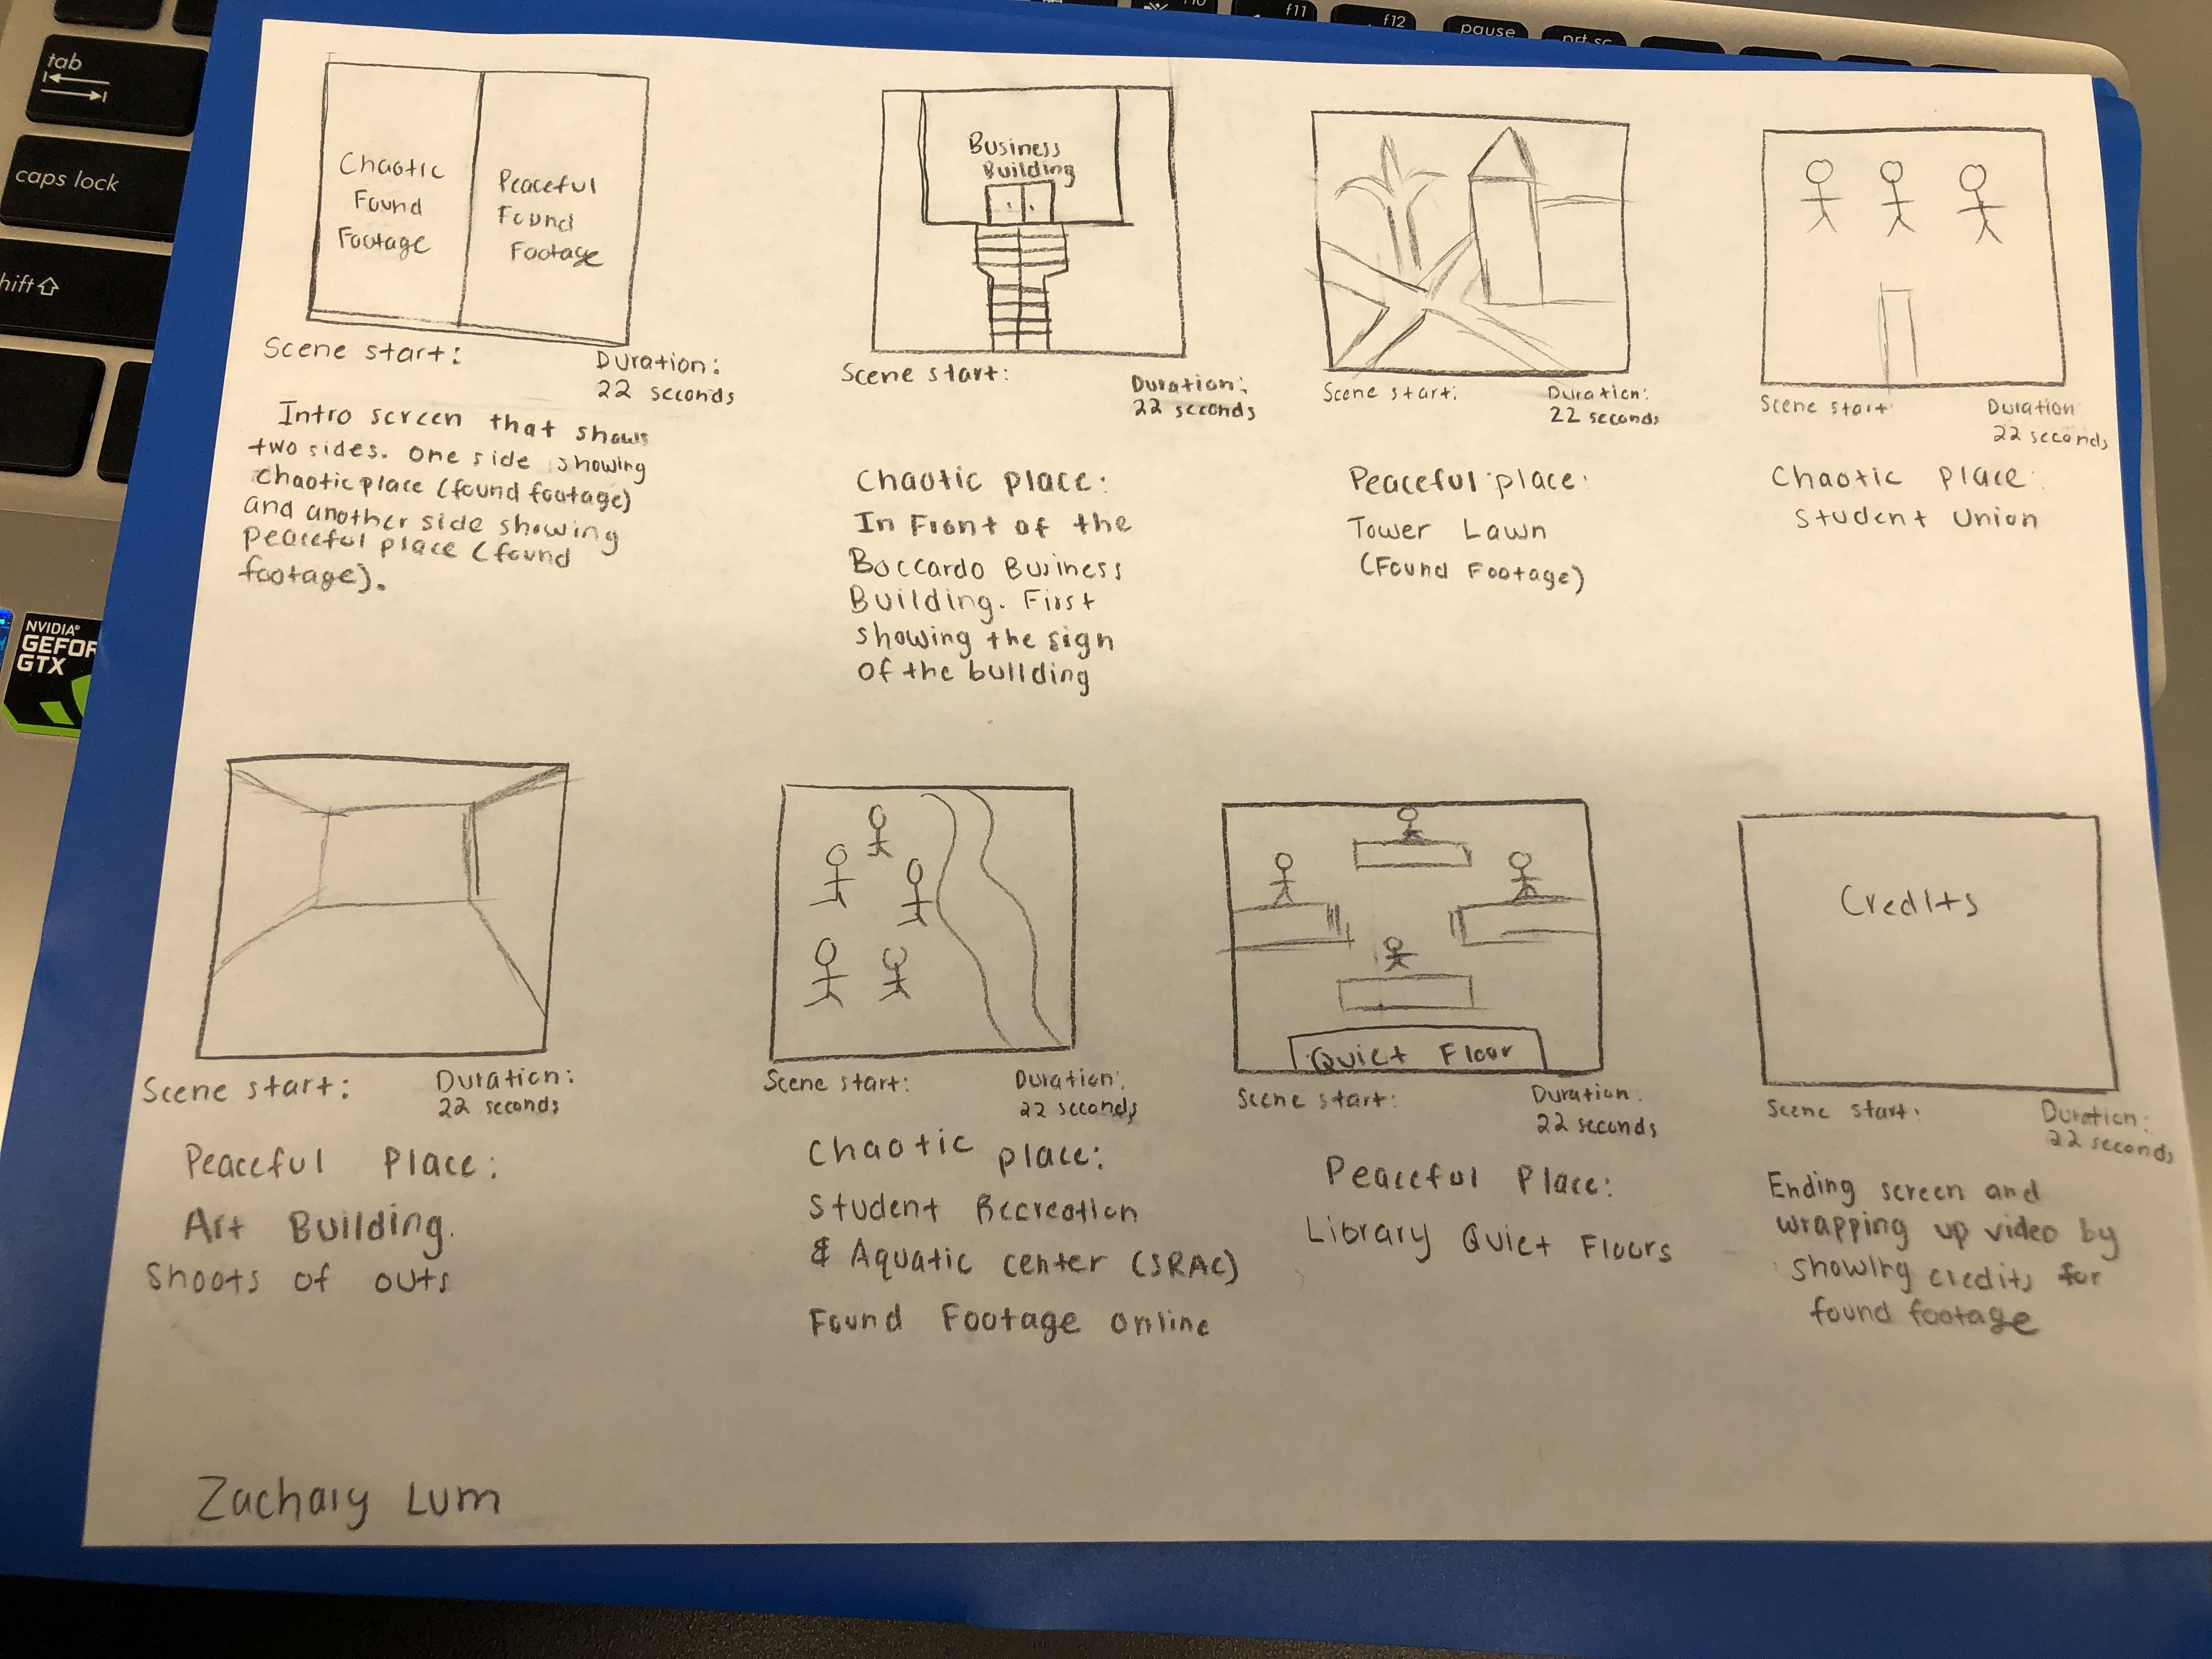 f10
f11
f12
pause
prt sc
tab
caps lock
hift
NVIDIA®
GEFOR
GTX
Chaotic
Found
Footage
Peaceful
Found
Footage
Scene start:
Duration:
22 seconds
Intro screen that shows
two sides. One side showing
chaotic place (found footage)
and another side showing
peaceful place (found
footage).
Business
Building
Scene start:
Duration:
22 seconds
Chaotic place:
In Front of the
Boccardo Business
Building. First
showing the sign
of the building
Scene start:
Duration:
22 seconds
Peaceful place:
Tower Lawn
(Found Footage)
Scene start
Duration
22 seconds
Chaotic place:
Student Union
Scene start:
Duration:
22 seconds
Peaceful Place:
Art Building.
Shoots of outs
Scene start:
Duration:
22 seconds
Chaotic place:
Student Recreation
& Aquatic center (SRAC)
Found Footage online
Quiet Floor
Scene start:
Duration:
22 seconds
Peaceful Place:
Library Quiet Floors
Credits
Scene start:
Duration:
22 seconds
Ending screen and
wrapping up video by
showing credits for
found footage
Zachary Lum